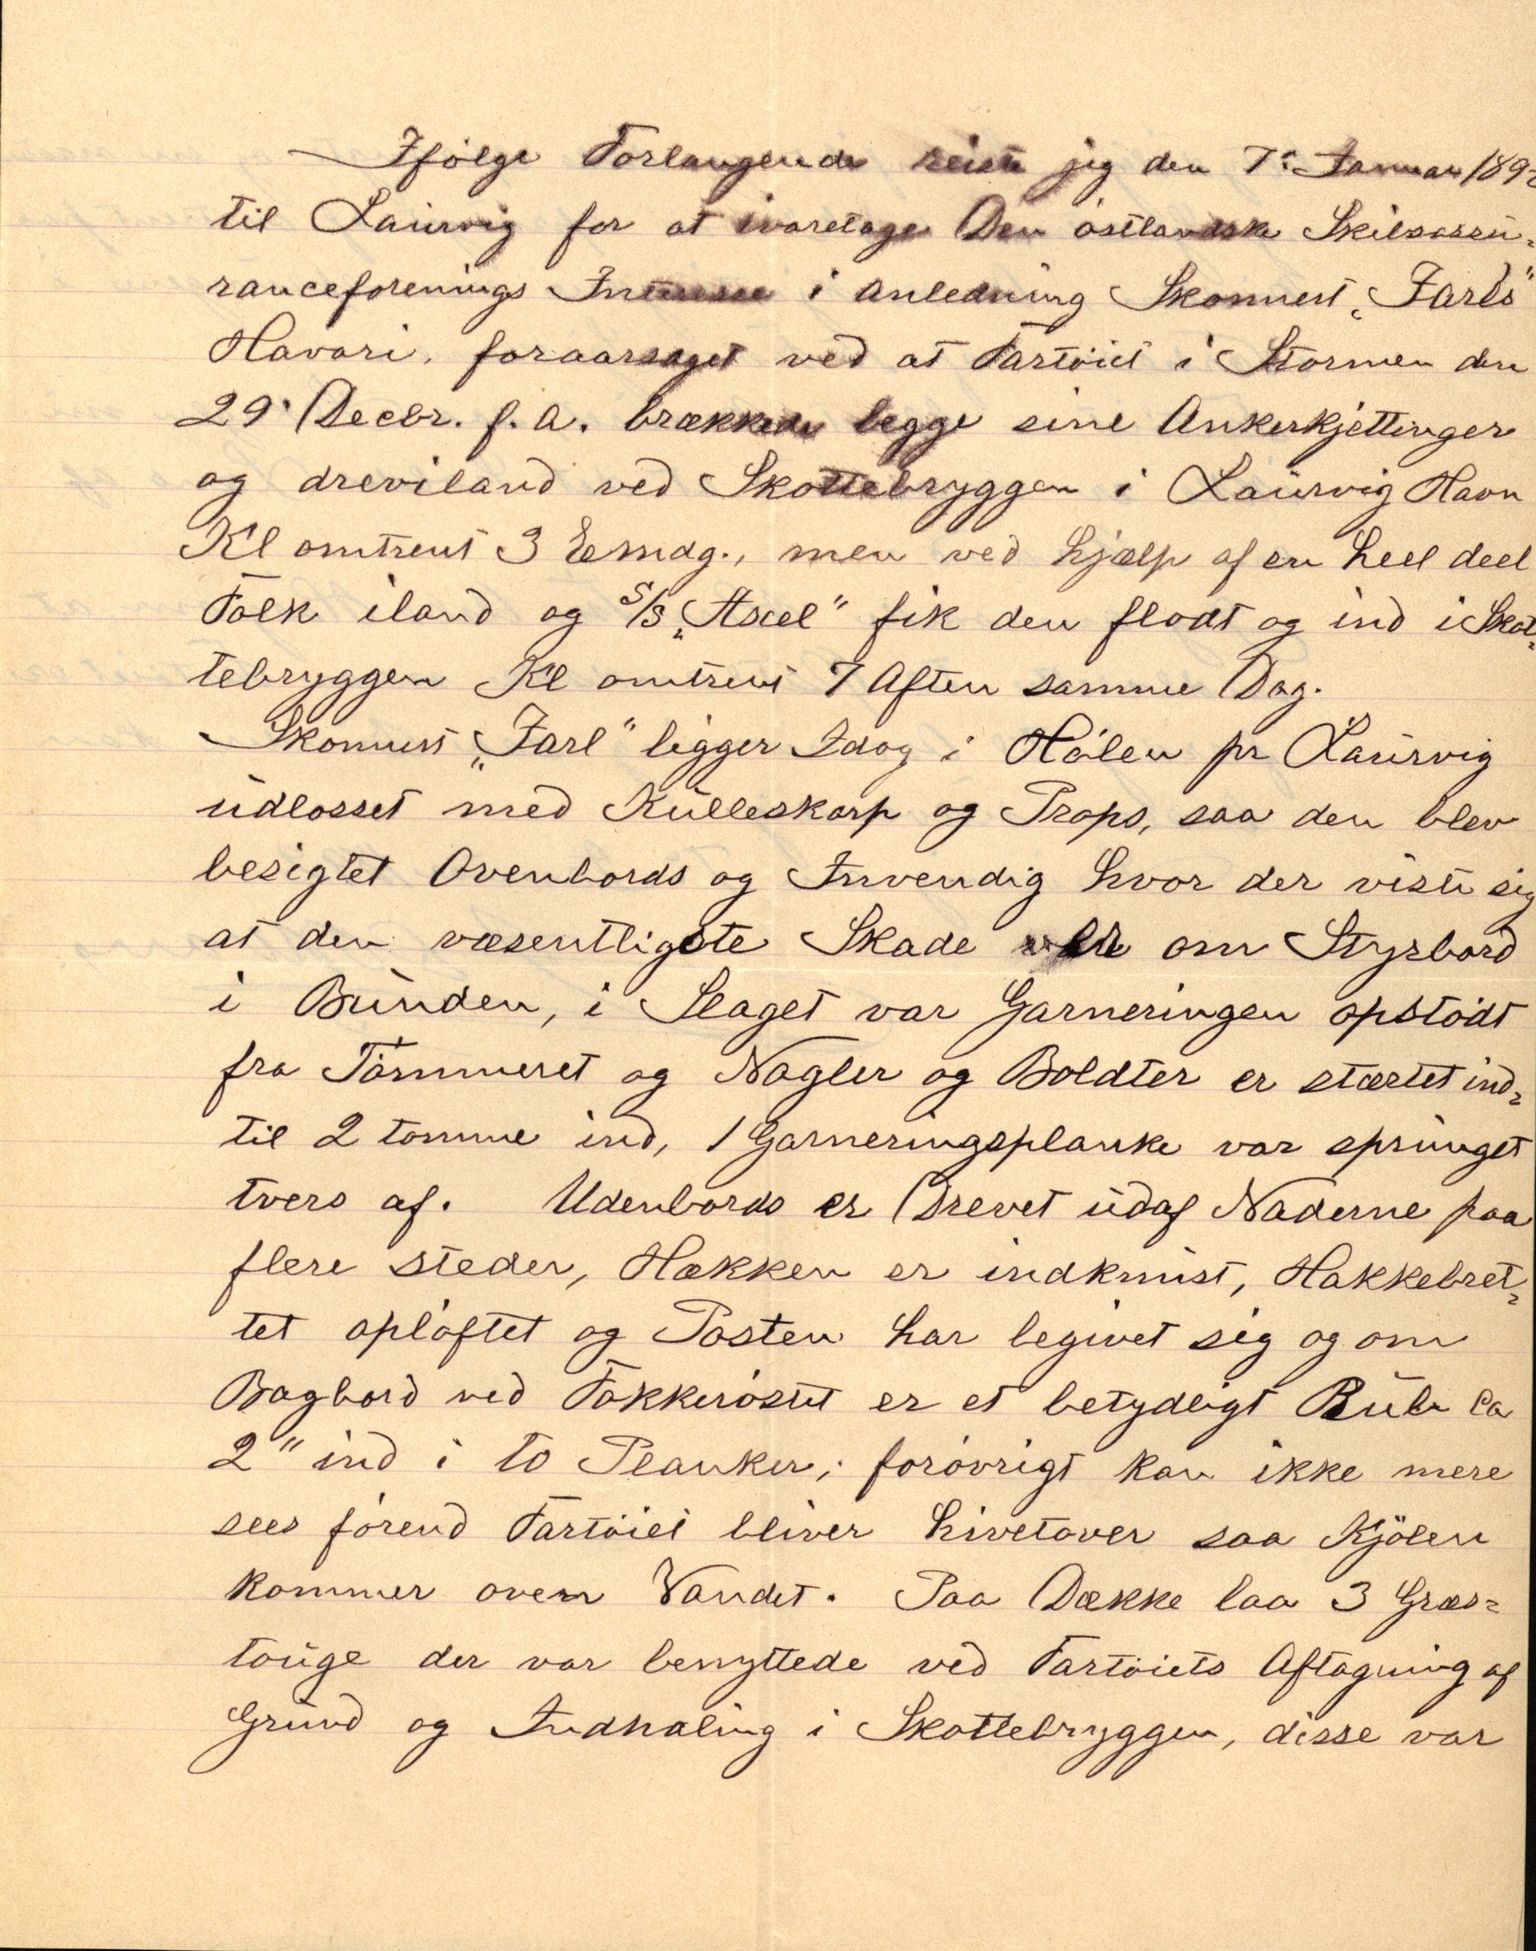 Ifølge Forlangende reiste jeg den 7de Januar 189
til Laurvig for at ivaretage Den østlandske Skibsassu-
ranceforenings Interesse i Anledning Skonnert „Jarls"
Havari, foraarsaget ved at Fartøiet i Stormen den
29' Decbr. f. A. brækkede begge sine Ankerkjettinger
og drev iland ved Skottebryggen i Laurvig Havn
Kl omtrent 3 Efmdg., men ved Hjælp af en heel deel
Folk iland og S/S „Axel" fik den flodt og ind i Skot-
tebryggen Kl omtrent 7 Aften samme Dag.
Skonnert „Jarl" ligger Idag i Hølen pr Laurvig
udlosset med Kulleskarp og Props, saa den blev
besigtet Ovenbords og Invendig hvor der viste sig
at den væsentligste Skade var om Styrbord
i Bunden, i Slaget var Garneringen opstødt
fra Tømmeret og Nagler og Boldter er stærtet ind-
til 2 tomme ind, 1 Garneringsplanke var sprunget
tvers af. Udenbords er Drevet udaf Naderne paa
flere steder, Hækken er indknust, Hakkebret-
tet opløftet og Posten har begivet sig og om
Bagbord ved Fokkerøstet er et betydeligt Bule Ca
2" ind i to Planker; forøvrigt kan ikke mere
sees førend Fartøiet bliver hivetover saa Kjølen
kommer oven Vandet. Paa Dække laa 3 Græs-
touge der var benyttede ved Fartøiets Aftagning af
Grund og Indhaling i Skottebryggen, disse var